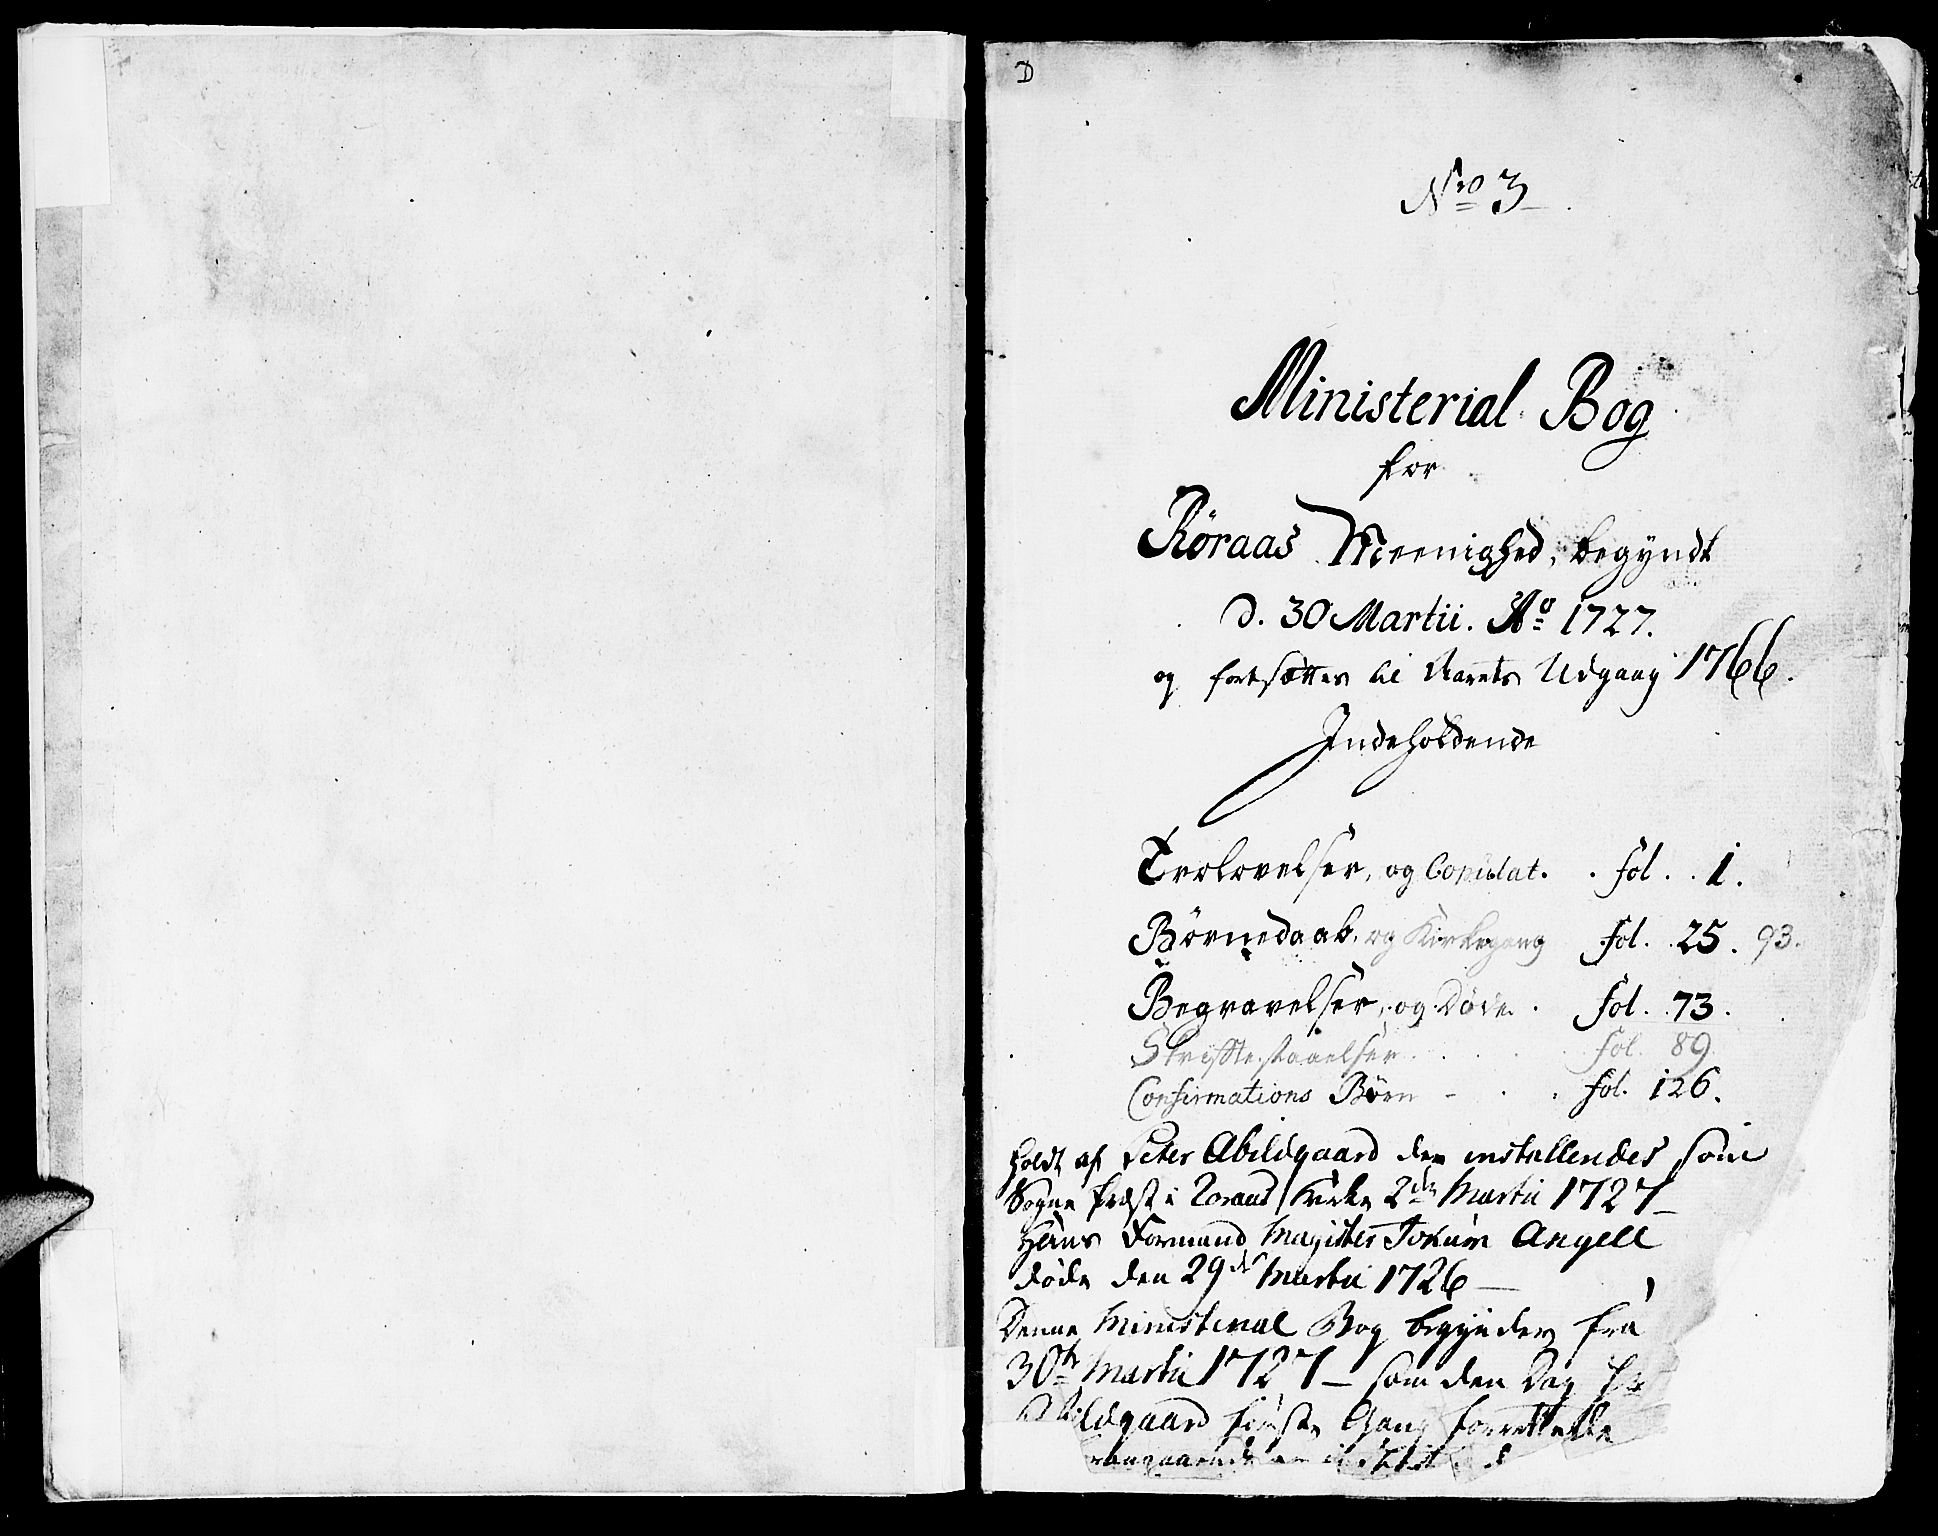 D
Nro 3
Ministerial Bog
for
Röraas Meenighed, begÿndt
d. 30 Martii. Ao 1727.
og fortsættes til Aarets Udgang 1766.
Indeholdende
Trolovelser, og Copulat. . fol. . 1.
Börnedaab, og Kirkegang fol. 25. 93.
Begravelser, og Døde. fol. 73.
Skriftestaaelser . . . fol. 89
Confirmations Börn - . . fol. 126.
Holdt af Peter Abildgaard der installendes som
Sogne Præst i Röraas Kirke 2den Martii 1727 -
Hans Formand Magister Jokum Angell
døde den 29de Martii 1726 -
Denne Ministerial Bog begynder fra
30te Martii 1727 - som den Dag Hr
Abildgaard første Gang forrettede